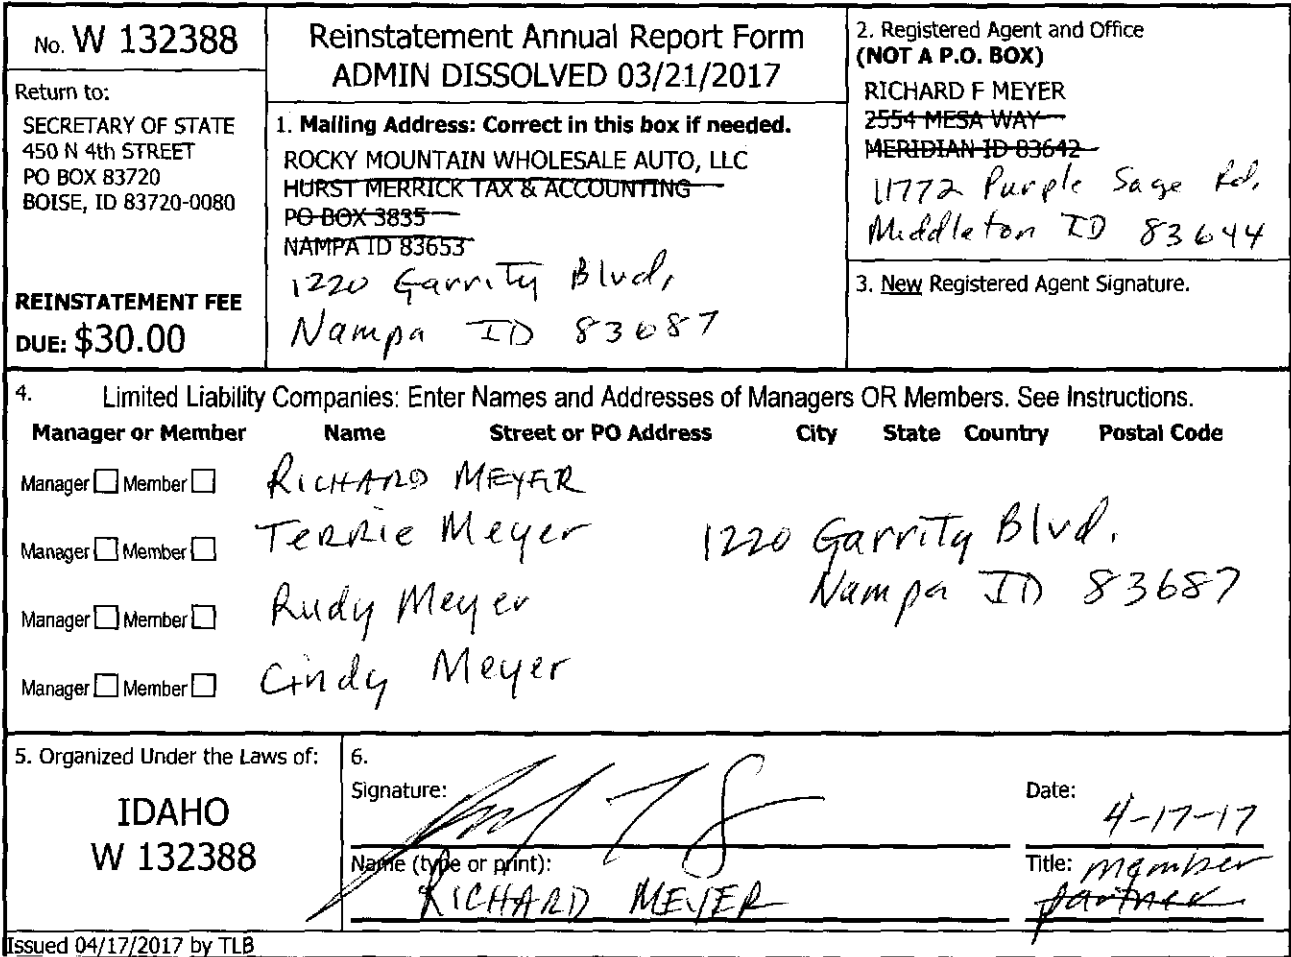 No. W 132388
Return to:
SECRETARY OF STATE
450 N 4th STREET
PO BOX 83720
BOISE, ID 83720-0080
REINSTATEMENT FEE
DUE: $30.00
Reinstatement Annual Report Form
ADMIN DISSOLVED 03/21/2017
1. Mailing Address: Correct in this box if needed.
ROCKY MOUNTAIN WHOLESALE AUTO, LLC
HURST MERRICK TAX & ACCOUNTING
PO BOX 3835
NAMPA ID 83653
1220 Garrity Blvd,
Nampa ID 83687
2. Registered Agent and Office
(NOT A P.O. BOX)
RICHARD F MEYER
2554 MESA WAY
MERIDIAN ID 83642
11772 Purple Sage Rd.
Middleton ID 83644
3. New Registered Agent Signature.
4. Limited Liability Companies: Enter Names and Addresses of Managers OR Members. See Instructions.
Manager or Member Name Street or PO Address City State Country Postal Code
Manager Member RICHARD MEYER
Manager Member Terrie Meyer 1220 Garrity Blvd.
Nampa ID 83687
Manager Member Rudy Meyer
Manager Member Cindy Meyer
5. Organized Under the Laws of:
IDAHO
W 132388
6.
Signature:
Date: 4-17-17
Name (type or print):
RICHARD MEYER
Title: member
partner
Issued 04/17/2017 by TLB